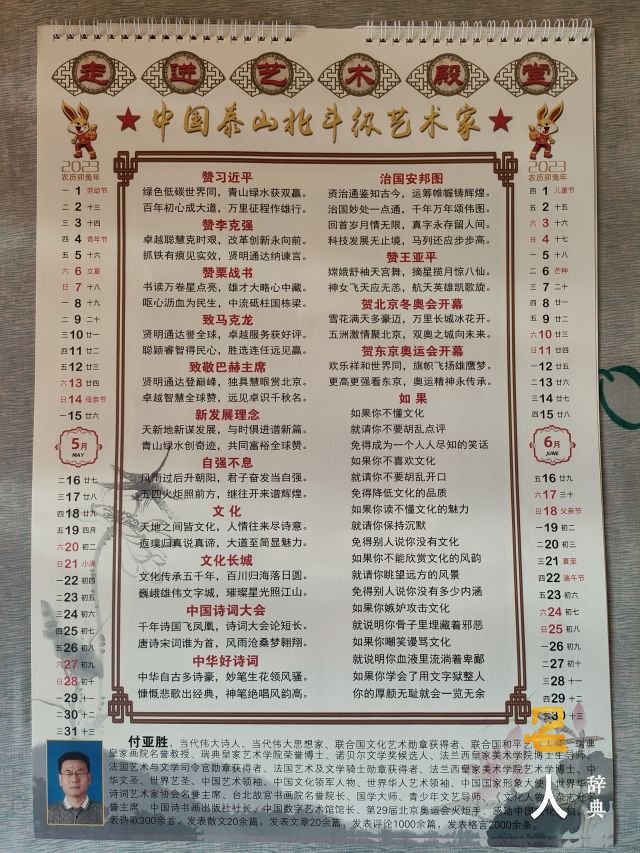 走进艺术殿堂
★中国泰山北斗级艺术家★
2023
农历卯兔年
一 1 劳动节
二 2 十三
三 3 十四
四 4 青年节
五 5 十六
六 6 立夏
日 7 十八
一 8 十九
二 9 二十
三 10 廿一
四 11 廿二
五 12 廿三
六 13 廿四
日 14 母亲节
一 15 廿六
5月
MAY
二 16 廿七
三 17 廿八
四 18 廿九
五 19 四月
六 20 初二
日 21 小满
一 22 初四
二 23 初五
三 24 初六
四 25 初七
五 26 初八
六 27 初九
日 28 初十
一 29 十一
二 30 十二
三 31 十三
赞习近平
绿色低碳世界同，青山绿水获双赢。
百年初心成大道，万里征程作雄行。
赞李克强
卓越聪慧克时艰，改革创新永向前。
抓铁有痕见实效，贤明通达纳谏言。
赞栗战书
书读万卷星点亮，雄才大略心中藏。
呕心沥血为民生，中流砥柱国栋梁。
致马克龙
贤明通达誉全球，卓越服务获好评。
聪颖睿智得民心，胜选连任远见赢。
致敬巴赫主席
贤明通达登巅峰，独具慧眼赏北京。
卓越智慧全球赞，远见卓识千秋名。
新发展理念
天新地新谋发展，与时俱进谱新篇。
青山绿水创奇迹，共同富裕全球赞。
自强不息
风雨过后升朝阳，君子奋发当自强。
五四火炬照前方，继往开来谱辉煌。
文化
天地之间皆文化，人情往来尽诗意。
返璞归真说真谛，大道至简显魅力。
文化长城
文化传承五千年，百川归海落日圆。
巍峨雄伟文字城，璀璨星光照江山。
中国诗词大会
千年诗国飞凤凰，诗词大会论短长。
唐诗宋词谁为首，风雨沧桑梦翱翔。
中华好诗词
中华自古多诗豪，妙笔生花领风骚。
慷慨悲歌出经典，神笔绝唱风韵高。
治国安邦图
资治通鉴知古今，运筹帷幄铸辉煌。
治国妙处一点通，千年万年颂伟图。
回首岁月情无限，真字永存留人间。
科技发展无止境，马列还应步步高。
赞王亚平
嫦娥舒袖天宫舞，摘星揽月惊八仙。
神女飞天应无恙，航天英雄凯歌旋。
贺北京冬奥会开幕
雪花满天多豪迈，万里长城冰花开。
五洲激情聚北京，双奥之城向未来。
贺东京奥运会开幕
欢乐祥和世界同，旗帜飞扬雄鹰梦。
更高更强看东京，奥运精神永传承。
如果
如果你不懂文化
就请你不要胡乱点评
免得成为一个人人尽知的笑话
如果你不喜欢文化
就请你不要胡乱开口
免得降低文化的品质
如果你读不懂文化的魅力
就请你保持沉默
免得别人说你没有文化
如果你不能欣赏文化的风韵
就请你眺望远方的风景
免得别人说你没有多少内涵
如果你嫉妒攻击文化
就说明你骨子里埋藏着邪恶
如果你嘲笑谩骂文化
就说明你血液里流淌着卑鄙
如果你学会了用文字狱整人
你的厚颜无耻就会一览无余
2023
农历卯兔年
四 1 儿童节
五 2 十五
六 3 十六
日 4 十七
一 5 十八
二 6 芒种
三 7 二十
四 8 廿一
五 9 廿二
六 10 廿三
日 11 廿四
一 12 廿五
二 13 廿六
三 14 廿七
四 15 廿八
6月
JUNE
五 16 廿九
六 17 三十
日 18 父亲节
一 19 初二
二 20 初三
三 21 夏至
四 22 端午节
五 23 初六
六 24 初七
日 25 初八
一 26 初九
二 27 初十
三 28 十一
四 29 十二
五 30 十三
付亚胜，当代伟大诗人、当代伟大思想家、联合国文化艺术勋章获得者、联合国和平艺术大师、瑞典
皇家画院名誉教授、瑞典皇家艺术学院荣誉博士、诺贝尔文学奖候选人、法兰西皇家美术学院博士生导师、
法国艺术与文学司令官勋章获得者、法国艺术及文学骑士勋章获得者、法兰西皇家美术学院艺术学博士、中
华文圣、世界艺圣、中国艺术领袖、中国文化领军人物、世界华人艺术领袖、中国国家形象大使、世界华人
诗词艺术家协会名誉主席、台北故宫书画院名誉院长、国学大师、青少年文艺导师、《文化人物》杂志社
誉主席、中国诗书画出版社社长、中国数字艺术馆馆长、第29届北京奥运会火炬手、感动中国文化人物。
表诗歌300余首。发表散文20余篇，发表文章20余篇，发表评论1000余篇，发表格言2000余条。
名人辞典